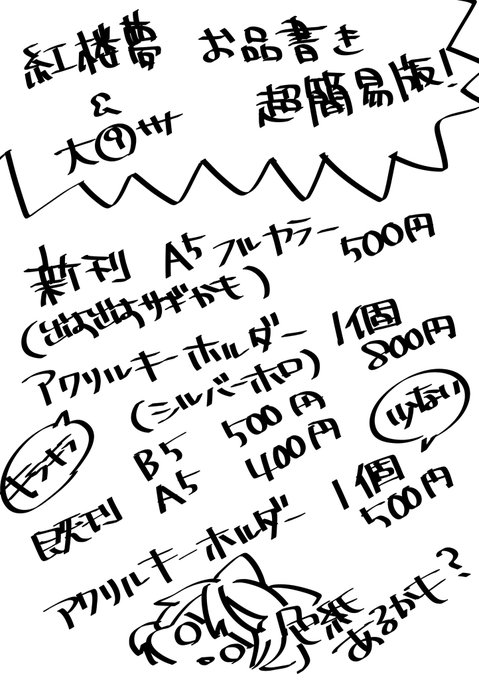 紅楼夢 お品書き
&
大⑨州
超簡易版!
新刊 A5フルカラー 500円
アクリルキーホルダー 1個
(シルバーホロ) 800円
キラキラ
既刊 B5 500円
A5 400円
少ない
アクリルキーホルダー 1個
500円
色紙
あるかも?